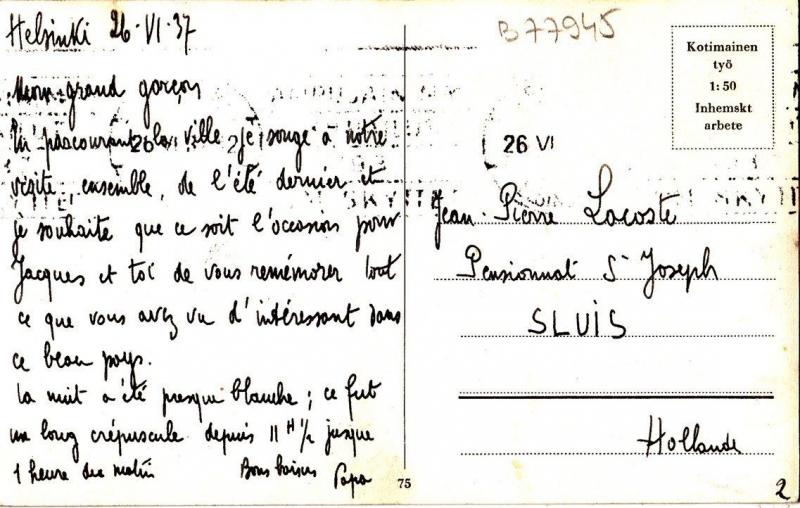 Helsinki 26·VI·37
B77945
Mon grand garçon
parcourant la ville je songe à notre
visite, ensemble, de l'été dernier et
je souhaite que ce soit l'occasion pour
Jacques et toi de vous remémorer tout
ce que vous avez vu d'intéressant dans
ce beau pays.
La nuit a été presque blanche ; ce fut
un long crépuscule depuis 11 H ½ jusque
1 heure du matin
Bons baisers
Papa
75
Kotimainen
työ
1:50
Inhemskt
arbete
26 VI
Jean-Pierre Lacoste
Pensionnat St Joseph
SLUIS
Hollande
2